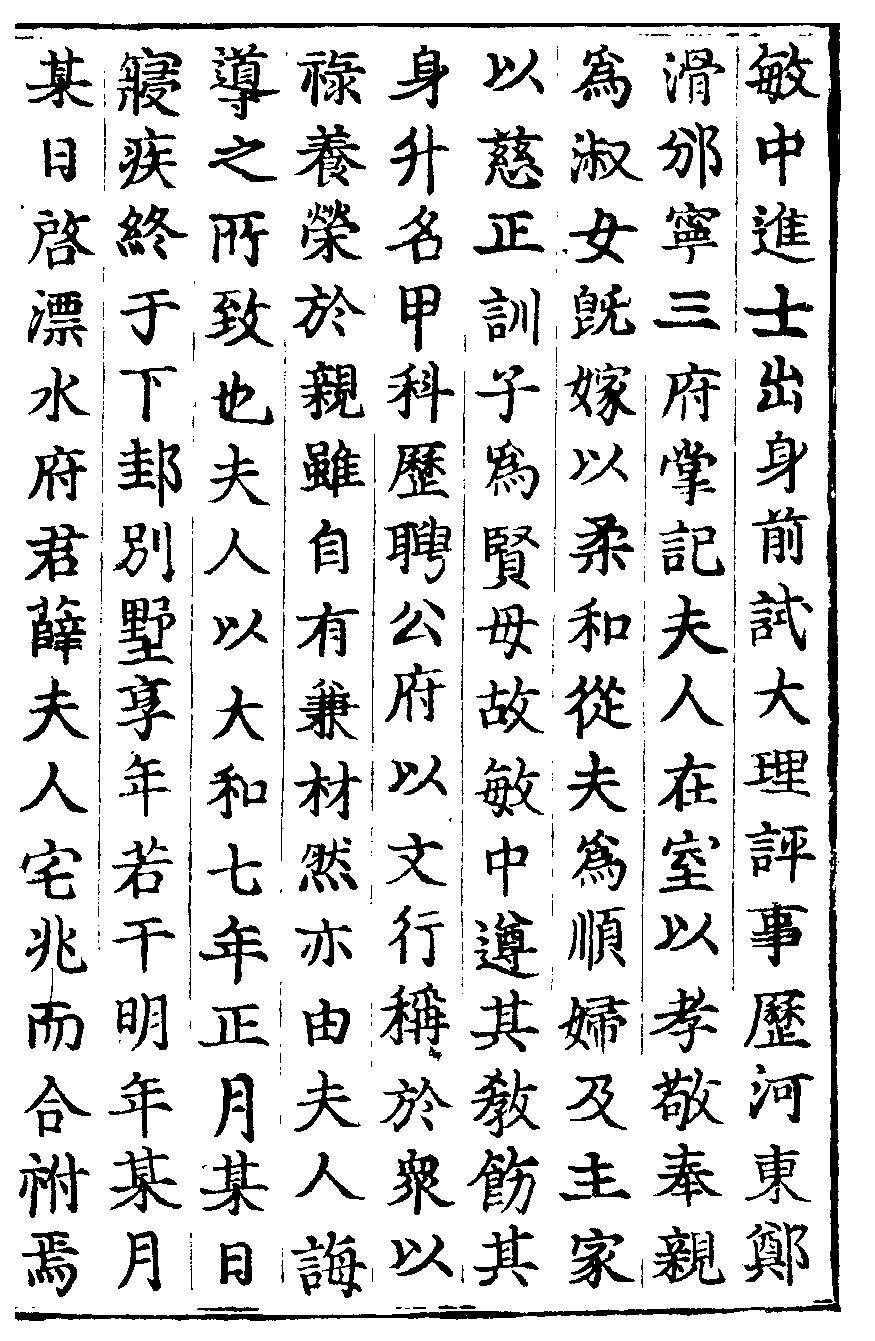 敏中進士出身前試大理評事歷河東鄭
滑邠寧三府掌記夫人在室以孝敬奉親
爲淑女旣嫁以柔和從夫爲順婦及主家
以慈正訓子爲賢母故敏中遵其敎飭其
身升名甲科歷聘公府以文行稱於衆以
祿養榮於親雖自有兼材然亦由夫人誨
導之所致也夫人以大和七年正月某日
寢疾終于下邽別墅享年若干明年某月
某日啓漂水府君薛夫人宅兆而合祔焉